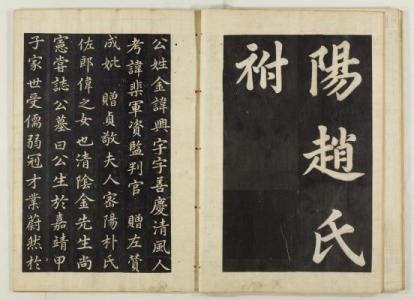 陽趙氏
祔
公姓金諱興宇字善慶清風人
考諱棐軍資監判官 贈左贊
成妣 贈貞敬夫人密陽朴氏
佐郎偉之女也清陰金先生尚
憲嘗誌公墓曰公生於嘉靖甲
子家世受儒弱冠才業蔚然於